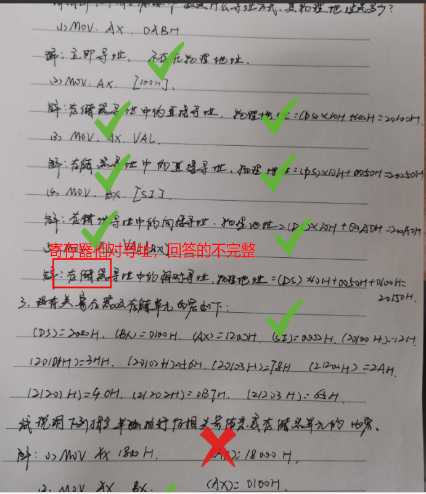 什么寻址方式,其物理地址是多少?
(1) MOV. AX. 0ABH
解:立即寻址. 不存在物理地址.
(2) MOV. AX. [100H].
解:存储器寻址中的直接寻址, 物理地址=(DS)×10H+100H=20100H.
(3) MOV. AX. VAL
解:存储器寻址中的直接寻址, 物理地址=(DS)×10H+0050H=20050H
MOV. BX. [SI]
解:存储器寻址中的间接寻址, 物理地址=(DS)×10H+
寄存器相对寻址,回答的不完整
解:存储器寻址中的相对寻址, 物理地址=(DS)×10H+0050H+0100H=
20150H
3. 设有关寄存器及存储单元内容如下:
(DS)=2000H, (BX)=0100H, (AX)=1200H, (SI)=0002H, (20100H)=12H
(20101H)=34H, (20102H)=56H, (20103H)=78H, (21200H)=2AH.
(21201H)=4CH, (21202H)=0B7H, (21203H)=65H
试说明下列指令单独执行后相关寄存器或存储单元的内容.
解:(1) MOV AX 1800H. (AX)=18000H.
(2) MOV AX BX. (AX)=0100H.